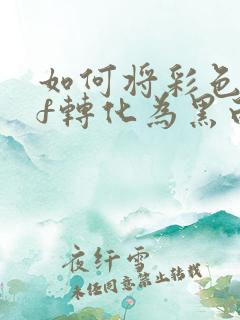 如何将彩色
f轉化為黑
夜纤雪
未经同意禁止转载